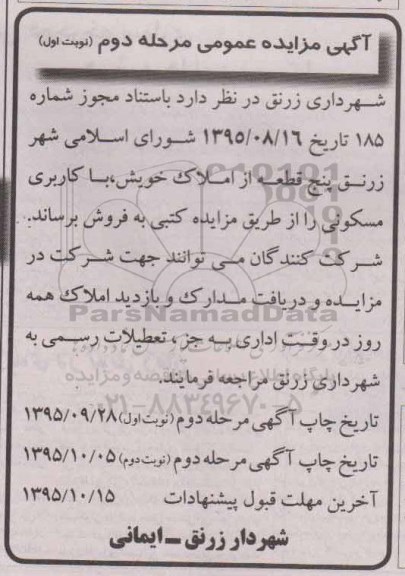 آگهی مزایده عمومی مرحله دوم (نوبت اول)
شهرداری زرنق در نظر دارد باستناد مجوز شماره
۱۸۵ تاریخ ۱۳۹۵/۰۸/۱۶ شورای اسلامی شهر
زرنق پنج قطعه از املاک خویش،با کاربری
مسکونی را از طریق مزایده کتبی به فروش برساند.
شرکت کنندگان می توانند جهت شرکت در
مزایده و دریافت مدارک و بازدید املاک همه
ParsNamadData
روز در وقت اداری به جز، تعطیلات رسمی به
شهرداری زرنق مراجعه فرمایند.
۰۲۱-۸۸۳۴۹۶۷۰-۵
تاریخ چاپ آگهی مرحله دوم (نوبت اول) ۱۳۹۵/۰۹/۲۸
تاریخ چاپ آگهی مرحله دوم (نوبت دوم) ۱۳۹۵/۱۰/۰۵
آخرین مهلت قبول پیشنهادات ۱۳۹۵/۱۰/۱۵
شهردار زرنق ـ ایمانی